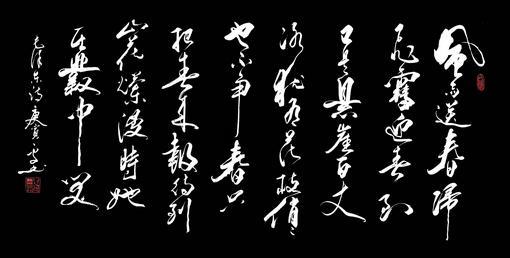 風雨送春歸
飛雪迎春到
已是懸崖百丈
冰猶有花枝俏〻
也不爭春只
把春來報待到
山花爛漫時她
在叢中笑
毛澤東詩庚寅